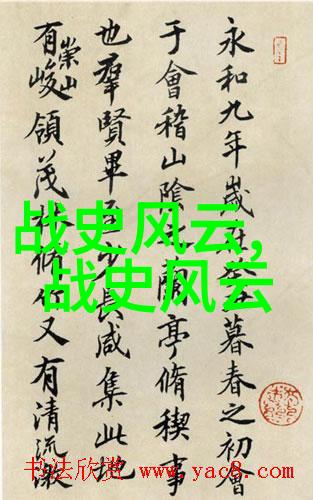 永和九年歲在癸丑暮春之初會
于會稽山陰之蘭亭脩稧事
也羣賢畢至少長咸集此地
有崇山峻領茂林脩竹又有清流激
战史风云,
战史风云
书法欣赏 www.yac8.com